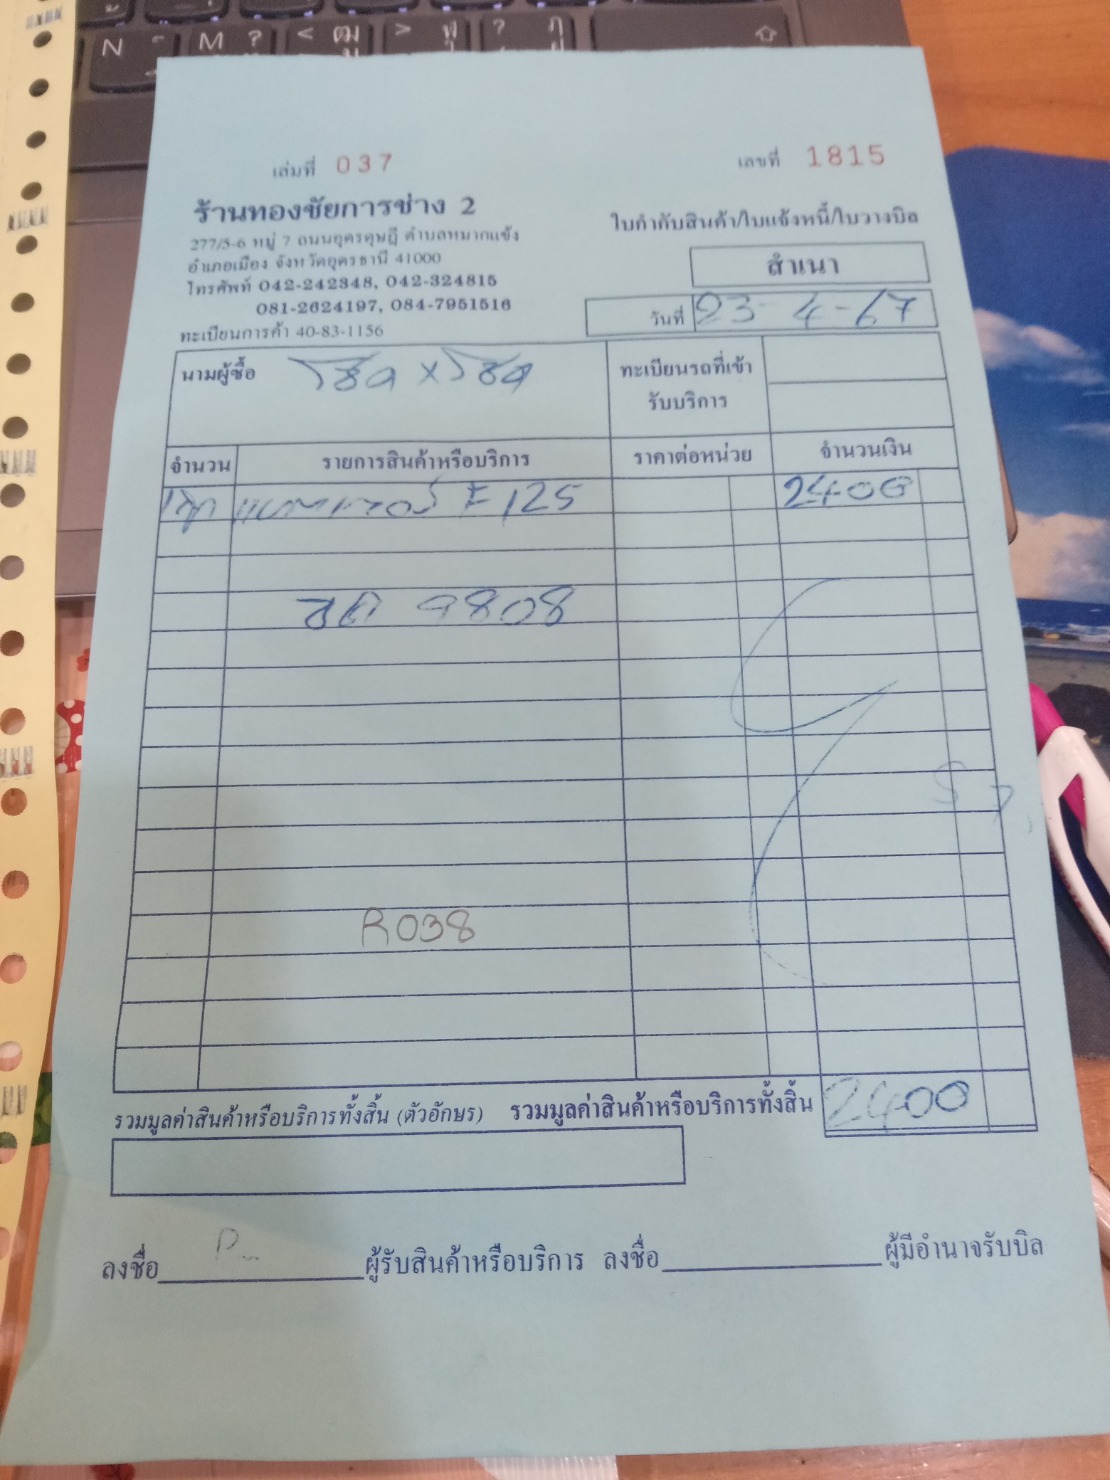 เล่มที่ 037
เลขที่ 1815
ร้านทองชัยการช่าง 2
277/5-6 หมู่ 7 ถนนอุดรดุษฎี ตำบลหมากแข้ง
อำเภอเมือง จังหวัดอุดรธานี 41000
โทรศัพท์ 042-242348, 042-324815
081-2624197, 084-7951516
ทะเบียนการค้า 40-83-1156
ใบกำกับสินค้า/ใบแจ้งหนี้/ใบวางบิล
สำเนา
วันที่ 23-4-67
นามผู้ซื้อ
ทะเบียนรถที่เข้า
รับบริการ
จำนวน รายการสินค้าหรือบริการ ราคาต่อหน่วย จำนวนเงิน
แบตเตอรี่ 125 2400
9808
R038
รวมมูลค่าสินค้าหรือบริการทั้งสิ้น (ตัวอักษร) รวมมูลค่าสินค้าหรือบริการทั้งสิ้น 2400
ลงชื่อ ผู้รับสินค้าหรือบริการ ลงชื่อ ผู้มีอำนาจรับบิล